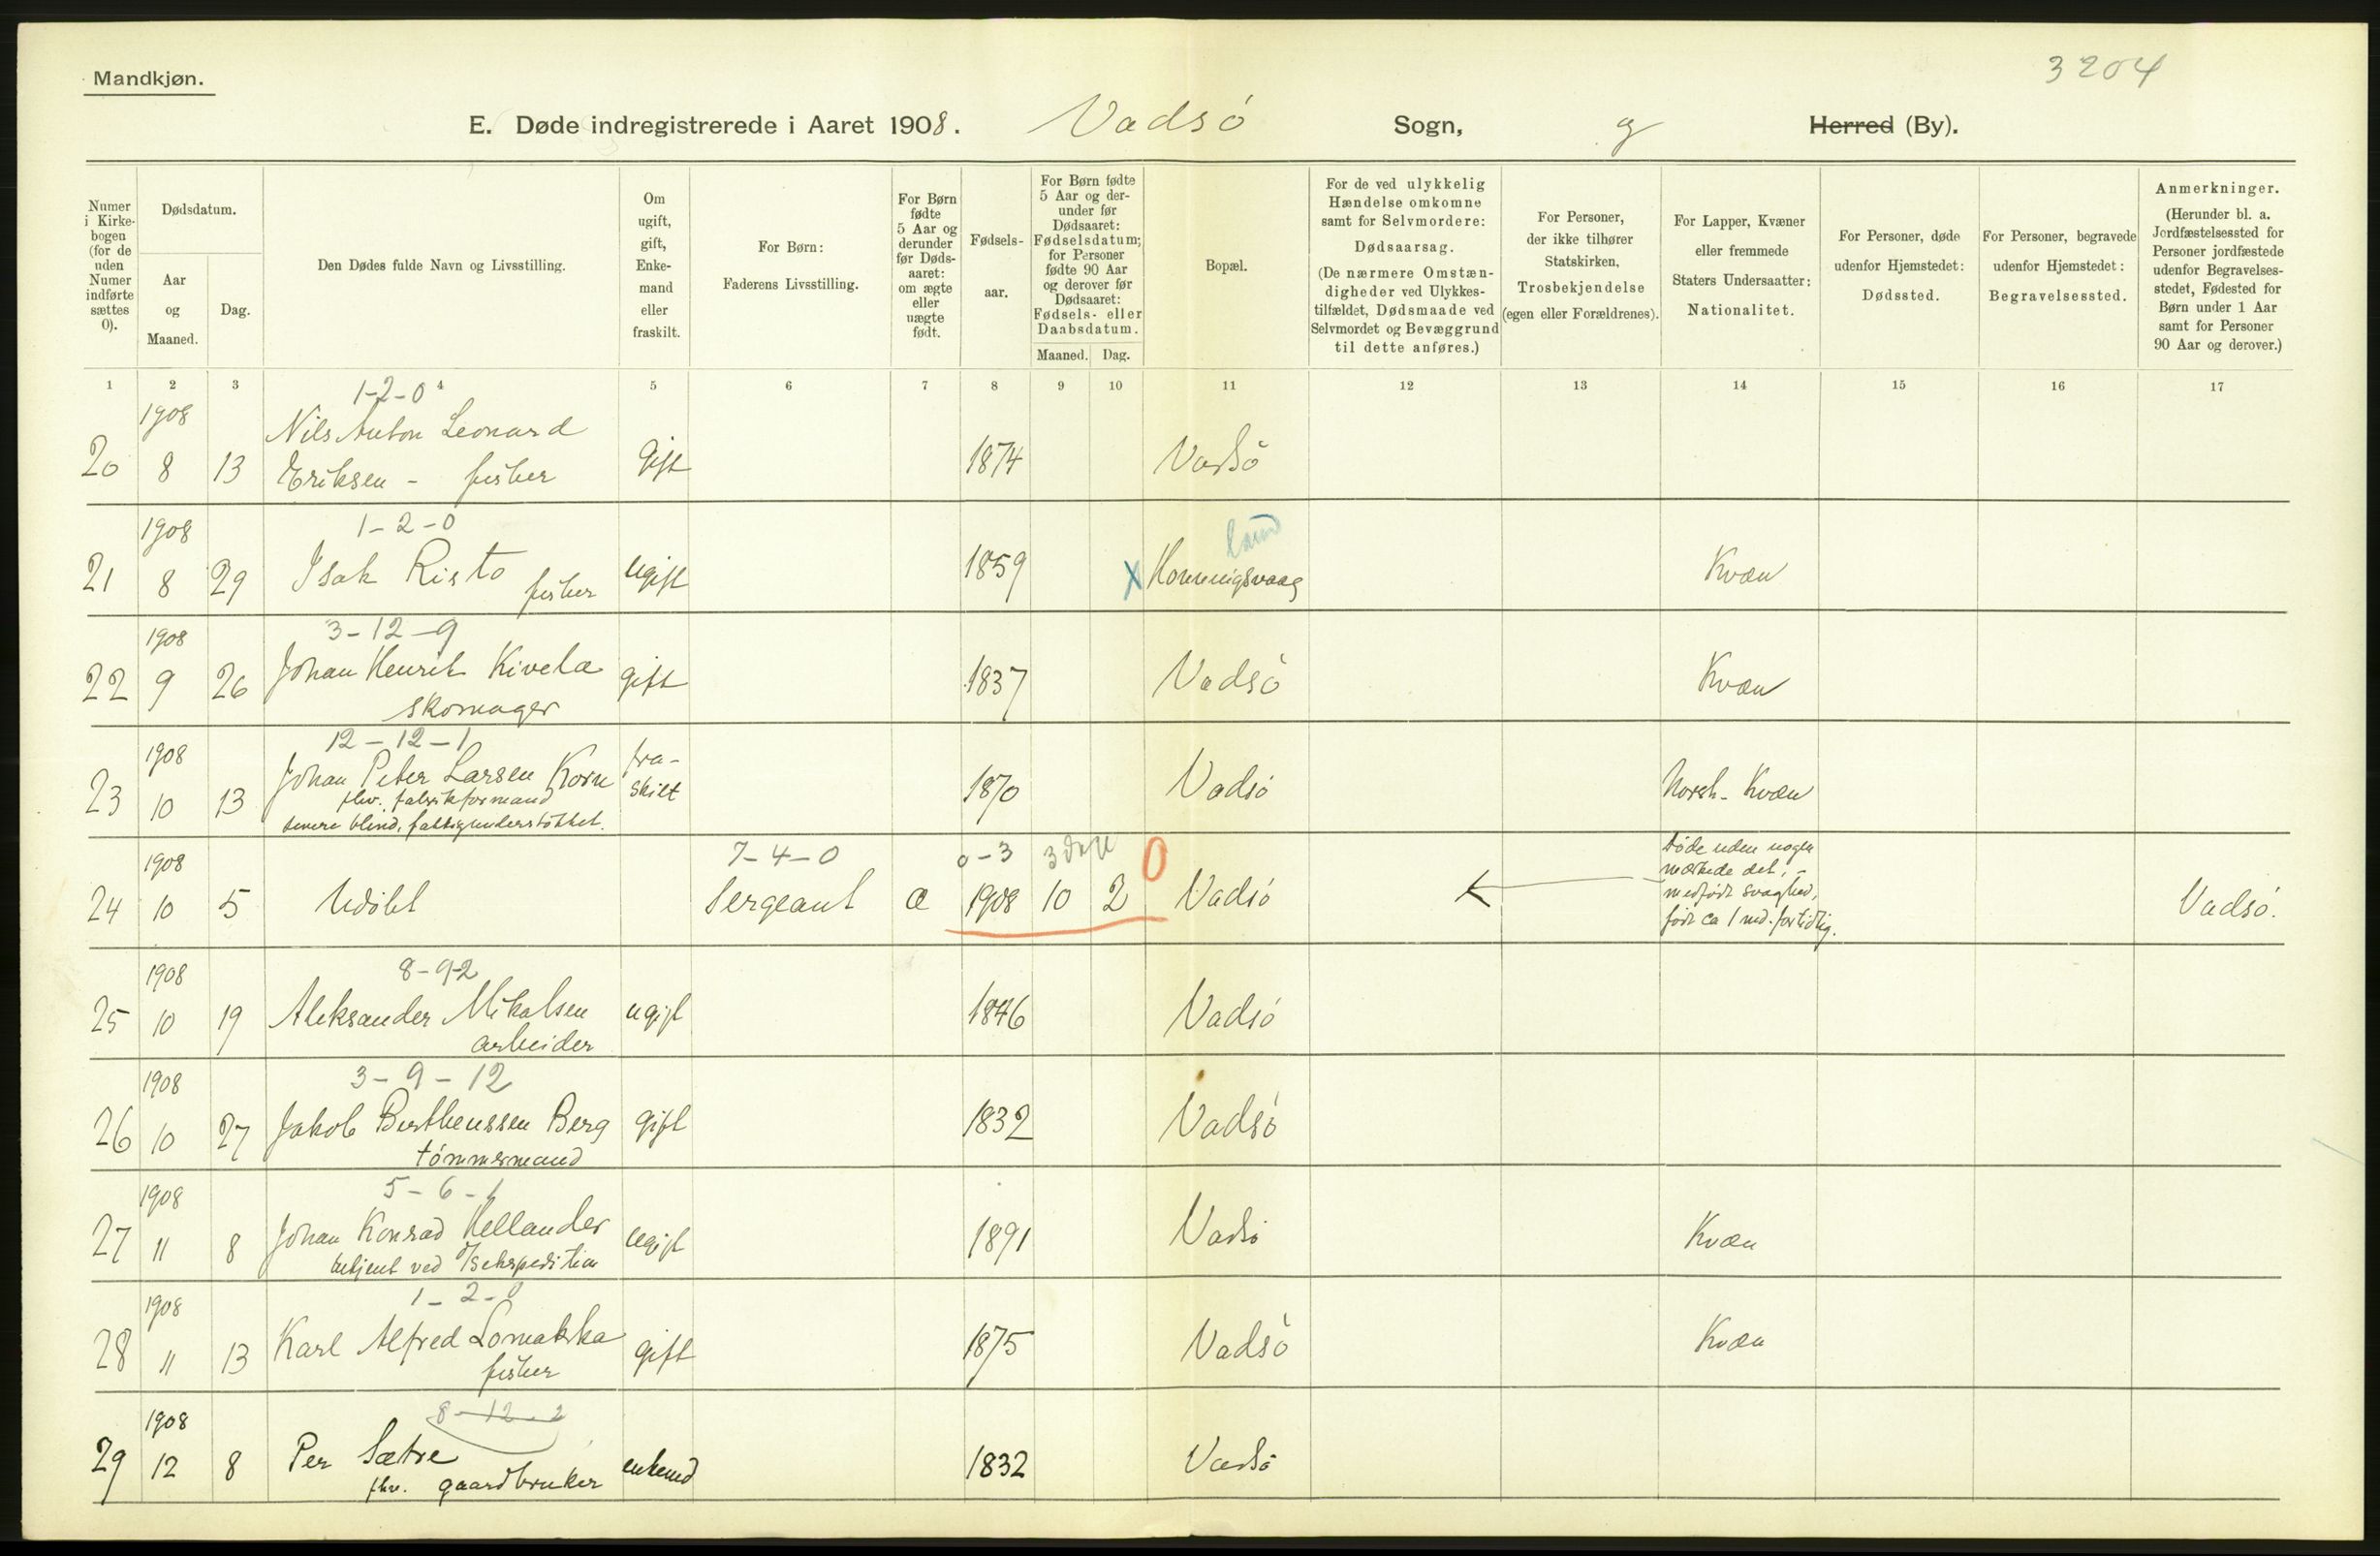 Mandkjøn.
3204
E. Døde indregistrerede i Aaret 1908. Vadsö Sogn, Herred (By).
Numer i Kirke-bogen (for de uden Numer indførte sættes 0).
Dødsdatum.
Aar og Maaned.
Dag.
Den Dødes fulde Navn og Livsstilling.
Om ugift, gift, Enke-mand eller fraskilt.
For Børn: Faderens Livsstilling.
For Børn fødte 5 Aar og derunder før Døds-aaret: om ægte eller uægte født.
Fødsels-aar.
For Børn fødte 5 Aar og der-under før Dødsaaret: Fødselsdatum; for Personer fødte 90 Aar og derover før Dødsaaret: Fødsels- eller Daabsdatum.
Maaned. Dag.
Bopæl.
For de ved ulykkelig Hændelse omkomne samt for Selvmordere: Dødsaarsag. (De nærmere Omstæn-digheder ved Ulykkes-tilfældet, Dødsmaade ved Selvmordet og Bevæggrund til dette anføres.)
For Personer, der ikke tilhører Statskirken, Trosbekjendelse (egen eller Forældrenes).
For Lapper, Kvæner eller fremmede Staters Undersaatter: Nationalitet.
For Personer, døde udenfor Hjemstedet: Dødssted.
For Personer, begravede udenfor Hjemstedet: Begravelsessted.
Anmerkninger. (Herunder bl. a. Jordfæstelsessted for Personer jordfæstede udenfor Begravelses-stedet, Fødested for Børn under 1 Aar samt for Personer 90 Aar og derover.)
1 2 3 4 5 6 7 8 9 10 11 12 13 14 15 16 17
1-2-0
1908
Nils Anton Leonard
20 8 13 Eriksen - fisker gift 1874 Vadsö
1908 1-2-0 land
21 8 29 Isak Risto fisker ugift 1859 x Honningsvaag Kvæn
1908 3-12-9
22 9 26 Johan Henrik Kivela gift 1837 Vadsö Kvæn
skomager
12-12-1
1908 fra-
23 10 13 Johan Peter Larsen Korn skilt 1870 Vadsö Norsk-Kvæn
fhv. fabrikformand
senere blind, fattigunderstöttet.
1908 7-4-0 0-3 3 dage 0
24 10 5 Udöbt Sergeant æ 1908 10 2 Vadsö Vadsö.
döde uden nogen
mærkede det, -
medfödt svaghed,
födt ca 1 md. for tidlig.
1908 8-9-2
25 10 19 Aleksander Mikalsen ugift 1846 Vadsö
arbeider
1908 3-9-12
26 10 27 Jakob Bertheussen Berg gift 1832 Vadsö
tömmermand
1908 5-6-1
27 11 8 Johan Konrad Hellander ugift 1891 Vadsö Kvæn
betjent ved D/Sekspedition
1908 1-2-0
28 11 13 Karl Alfred Lomakka gift 1875 Vadsö Kvæn
fisker
1908 8-12-2
29 12 8 Per Sætre enkemd 1832 Vadsö
fhv. gaardbruker